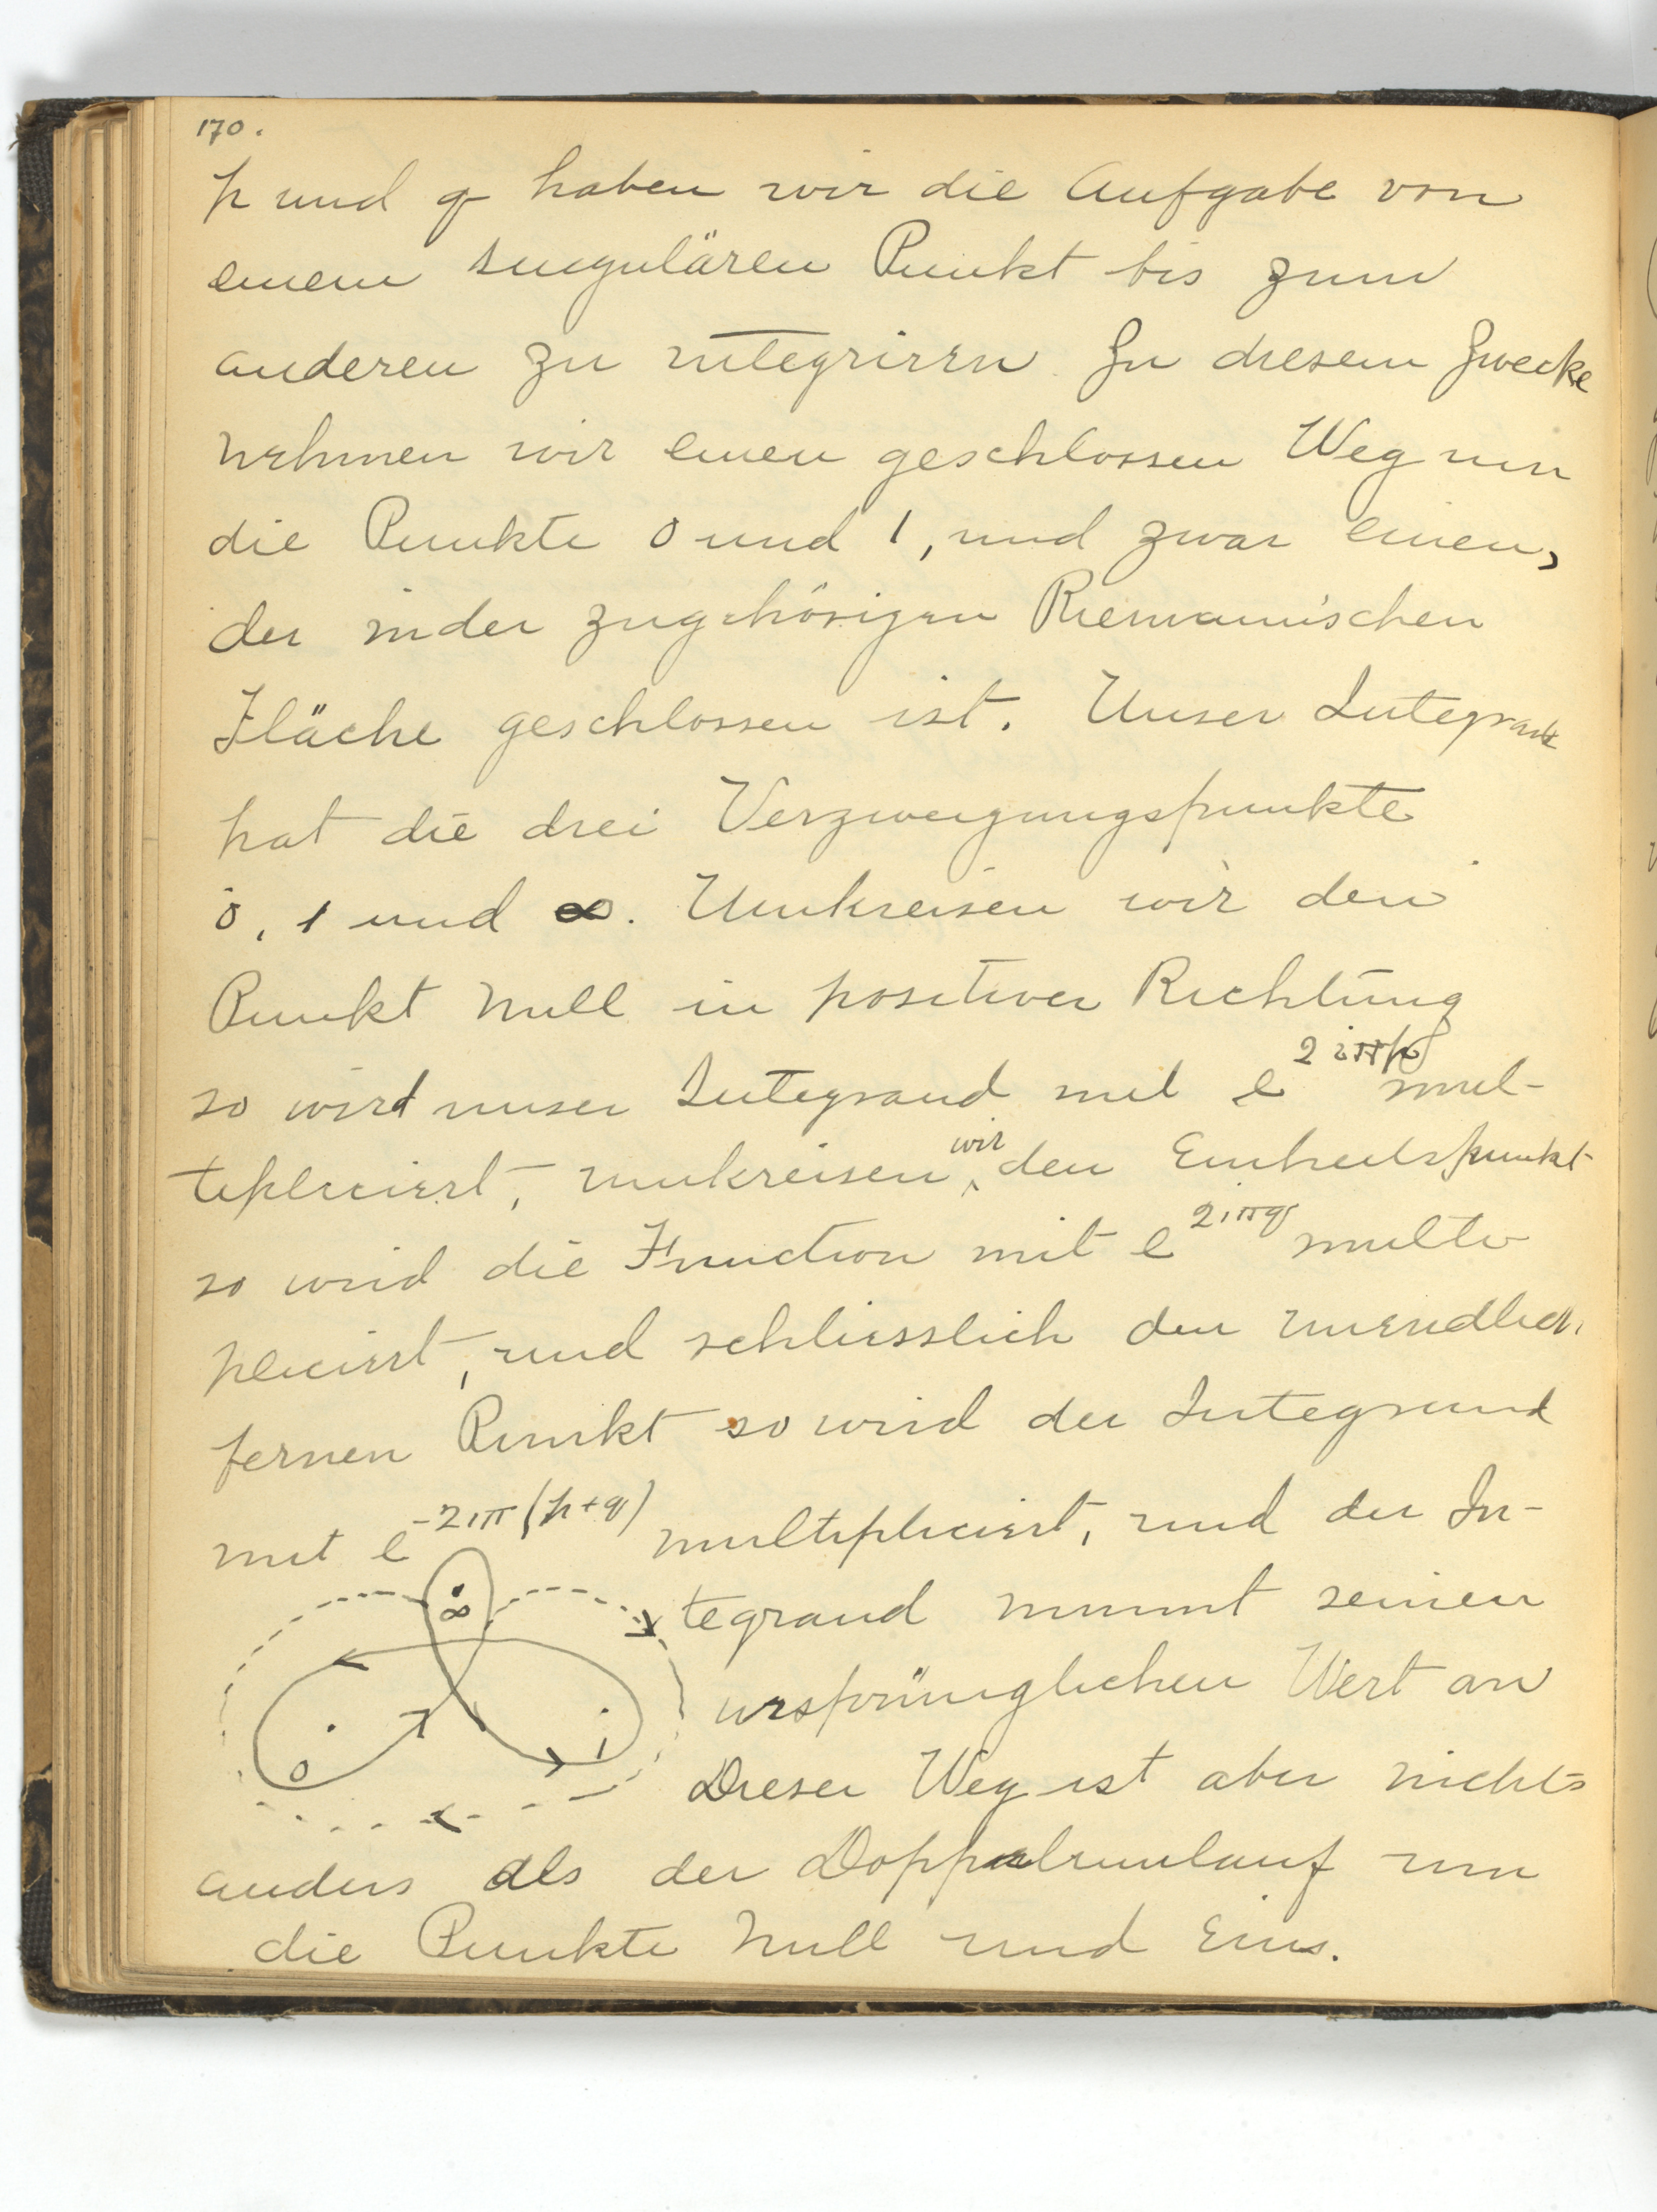 170.
p und q haben wir die Aufgabe von
einem singulären Punkt bis zum
anderen zu integriren. Zu diesem Zwecke
nehmen wir einen geschlossen Weg um
die Punkte 0 und 1, und zwar einen,
der in der zugehörigen Riemannischen
Fläche geschlossen ist. Unser Integrand
hat die drei Verzweigungspunkte
0, 1 und ∞. Umkreisen wir den
Punkt Null in positiver Richtung
so wird unser Integrand mit e^{2iπp} mul-
tipliciert, umkreisen wir den Einheitspunkt
so wird die Function mit e^{2iπq} multi-
pliciert, und schliesslich den unendlich
fernen Punkt so wird der Integrand
mit e^{-2iπ(p+q)} multipliciert, und der In-
tegrand nimmt seinen
ursprünglichen Wert an
Dieser Weg ist aber nichts
anders als der Doppelumlauf um
die Punkte Null und Eins.
∞
0
1